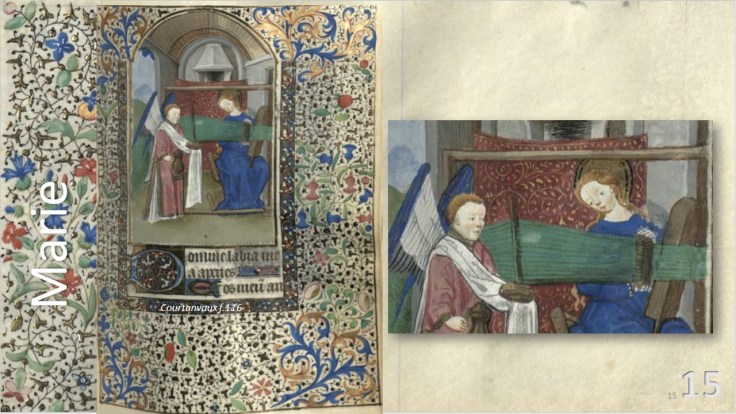 Marie
Domine labia me
a aperies
Et os meum an
Courtanvaux f.116
15
15